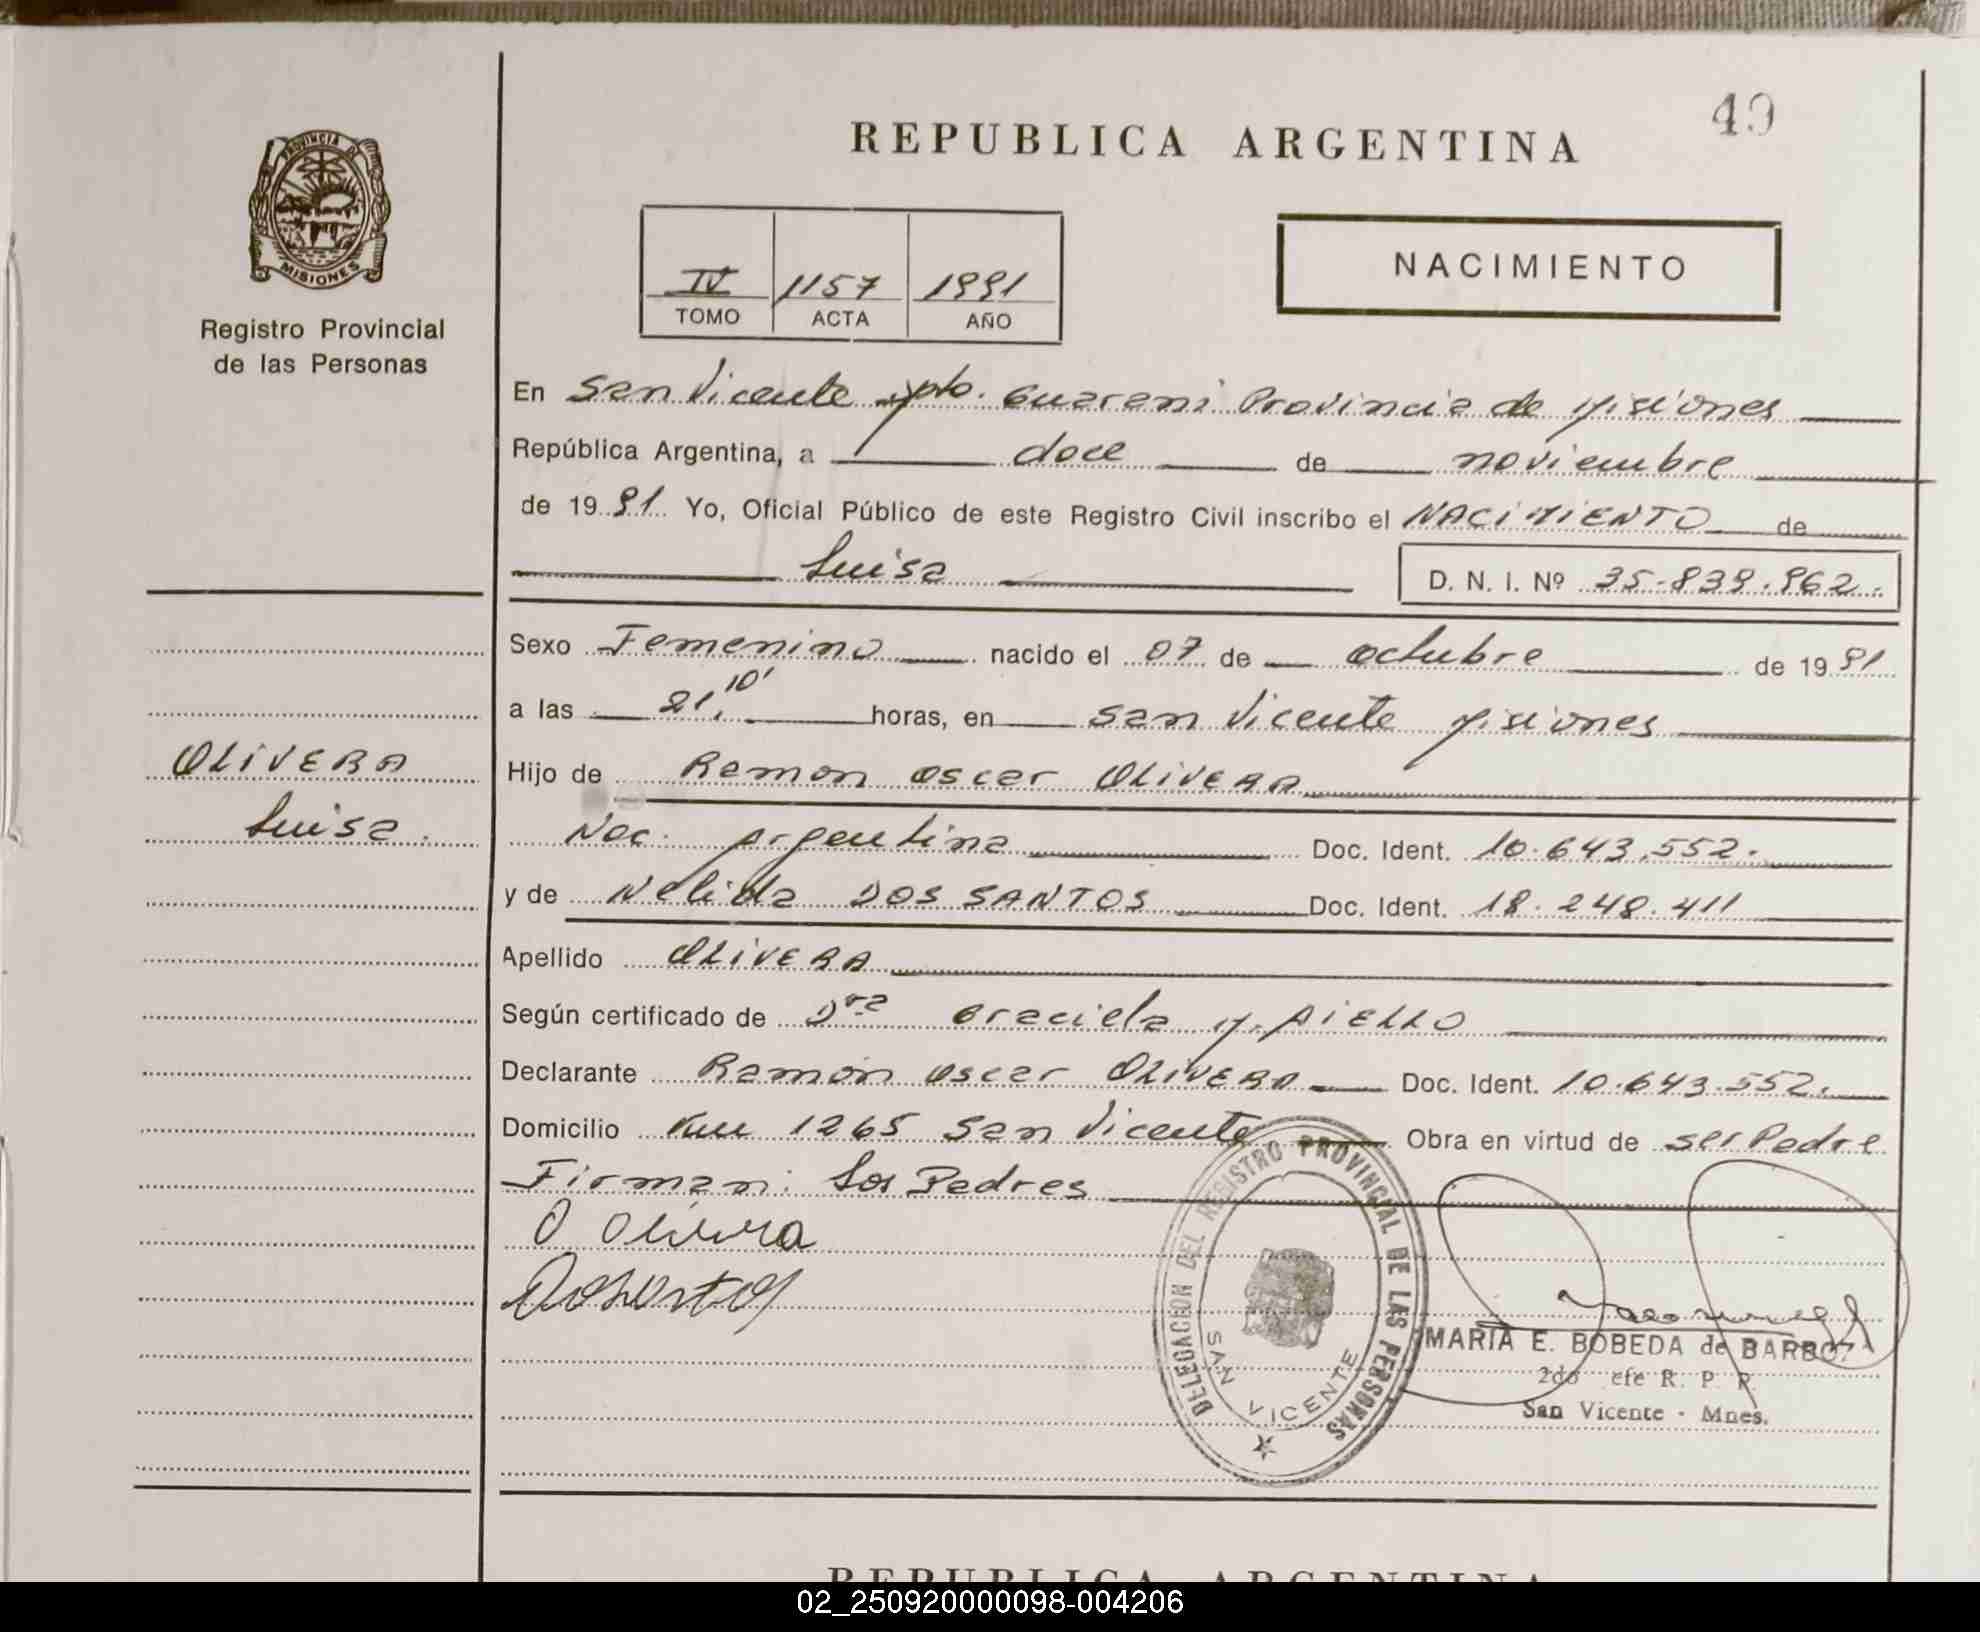 49
REPUBLICA ARGENTINA
PROVINCIA DE
MISIONES
Registro Provincial
de las Personas
IV 1157 1991
TOMO ACTA AÑO
NACIMIENTO
En San Vicente Dpto. Guarani Provincia de Misiones
República Argentina, a doce de noviembre
de 1991 Yo, Oficial Público de este Registro Civil inscribo el NACIMIENTO de
Luisa D. N. I. Nº 35.839.962.
Sexo Femenino nacido el 07 de octubre de 1991
a las 21,10' horas, en San Vicente Misiones
OLIVERA
Luisa.
Hijo de Ramon Oscar OLIVERA
Nac. Argentina Doc. Ident. 10.643.552.
y de Nelida DOS SANTOS Doc. Ident. 18.248.411
Apellido OLIVERA
Según certificado de Dra Graciela M. AIELLO
Declarante Ramón Oscar OLIVERA Doc. Ident. 10.643.552.
Domicilio Km 1265 San Vicente Obra en virtud de ser Padre
Firman: Los Padres
O Olivera
DELEGACION DEL REGISTRO PROVINCIAL DE LAS PERSONAS
SAN VICENTE
MARIA E. BOBEDA de
2do efe R. P. P.
San Vicente - Mnes.
REPUBLICA ARGENTINA
02_250920000098-004206